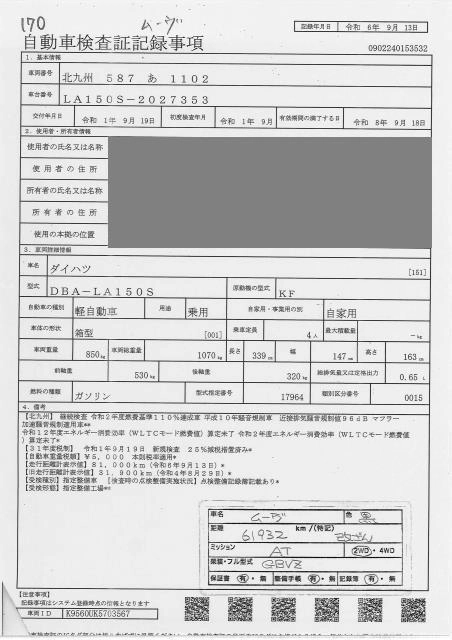 170 ムーヴ
記録年月日 令和 6年 9月 13日
自動車検査証記録事項
0902240153532
1. 基本情報
車両番号 北九州 587 あ 1102
車台番号 LA150S-2027353
交付年月日 令和 1年 9月 19日 初度検査年月 令和 1年 9月 有効期間の満了する日 令和 8年 9月 18日
2. 使用者・所有者情報
使用者の氏名又は名称
使用者の住所
所有者の氏名又は名称
所有者の住所
使用の本拠の位置
3. 車両詳細情報
車名 ダイハツ [151]
型式 DBA-LA150S 原動機の型式 KF
自動車の種別 軽自動車 用途 乗用 自家用・事業用の別 自家用
車体の形状 箱型 [001] 乗車定員 4人 最大積載量 -kg
車両重量 850kg 車両総重量 1070kg 長さ 339cm 幅 147cm 高さ 163cm
前軸重 530kg 後軸重 320kg 総排気量又は定格出力 0.65 L
燃料の種類 ガソリン 型式指定番号 17964 類別区分番号 0015
4. 備考
【北九州】 継続検査 令和2年度燃費基準110%達成車 平成10年騒音規制車 近接排気騒音規制値96dB マフラー
加速騒音規制適用車**
令和12年度エネルギー消費効率(WLTCモード燃費値)算定未了 令和2年度エネルギー消費効率(WLTCモード燃費値
)算定未了*
【31年度税制】 令和1年9月19日 新規検査 25%減税措置済み*
【自動車重量税額】¥5,000 本則税率適用*
【走行距離計表示値】81,000km(令和6年9月13日)*
【旧走行距離計表示値】31,900km(令和4年8月29日)*
【受検種別】指定整備車 【検査時の点検整備実施状況】点検整備記録簿記載あり*
【受検形態】指定整備工場**
車名 ムーヴ 色 黒
距離 61932 km/(特記) 改ざん
ミッション AT 2WD・4WD
架装・フル型式 GBVZ
保証書 有・無 整備手帳 有・無 記録簿 有・無
【注意事項】
記録事項はシステム登録時点の情報となります
車両ID K9560UK5703567